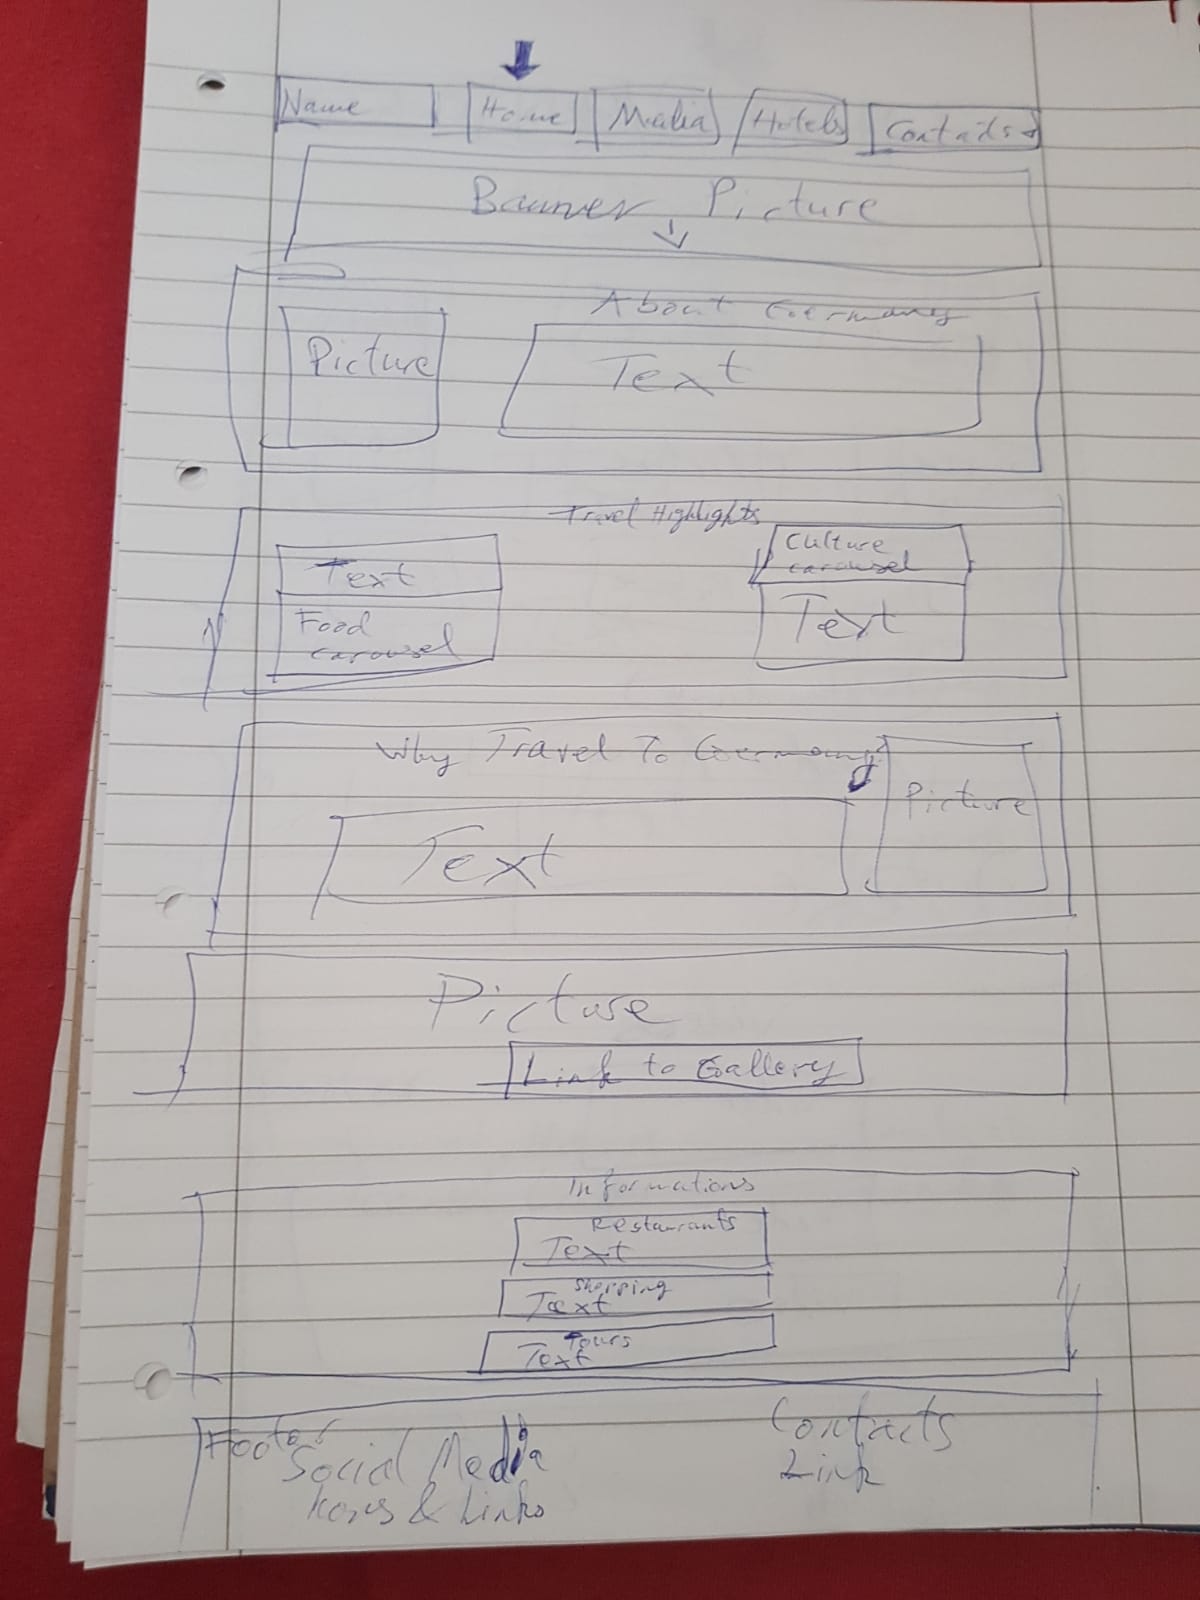 Name Home Media Hotels Contacts
Banner Picture
About Germany
Picture Text
Travel Highlights
Text
Food
carousel
Culture
carousel
Text
Why Travel To Germany?
Text
Picture
Picture
Link to Gallery
Informations
Restaurants
Text
Shopping
Text
Tours
Text
Footer
Social Media
& Links
Contacts
Link